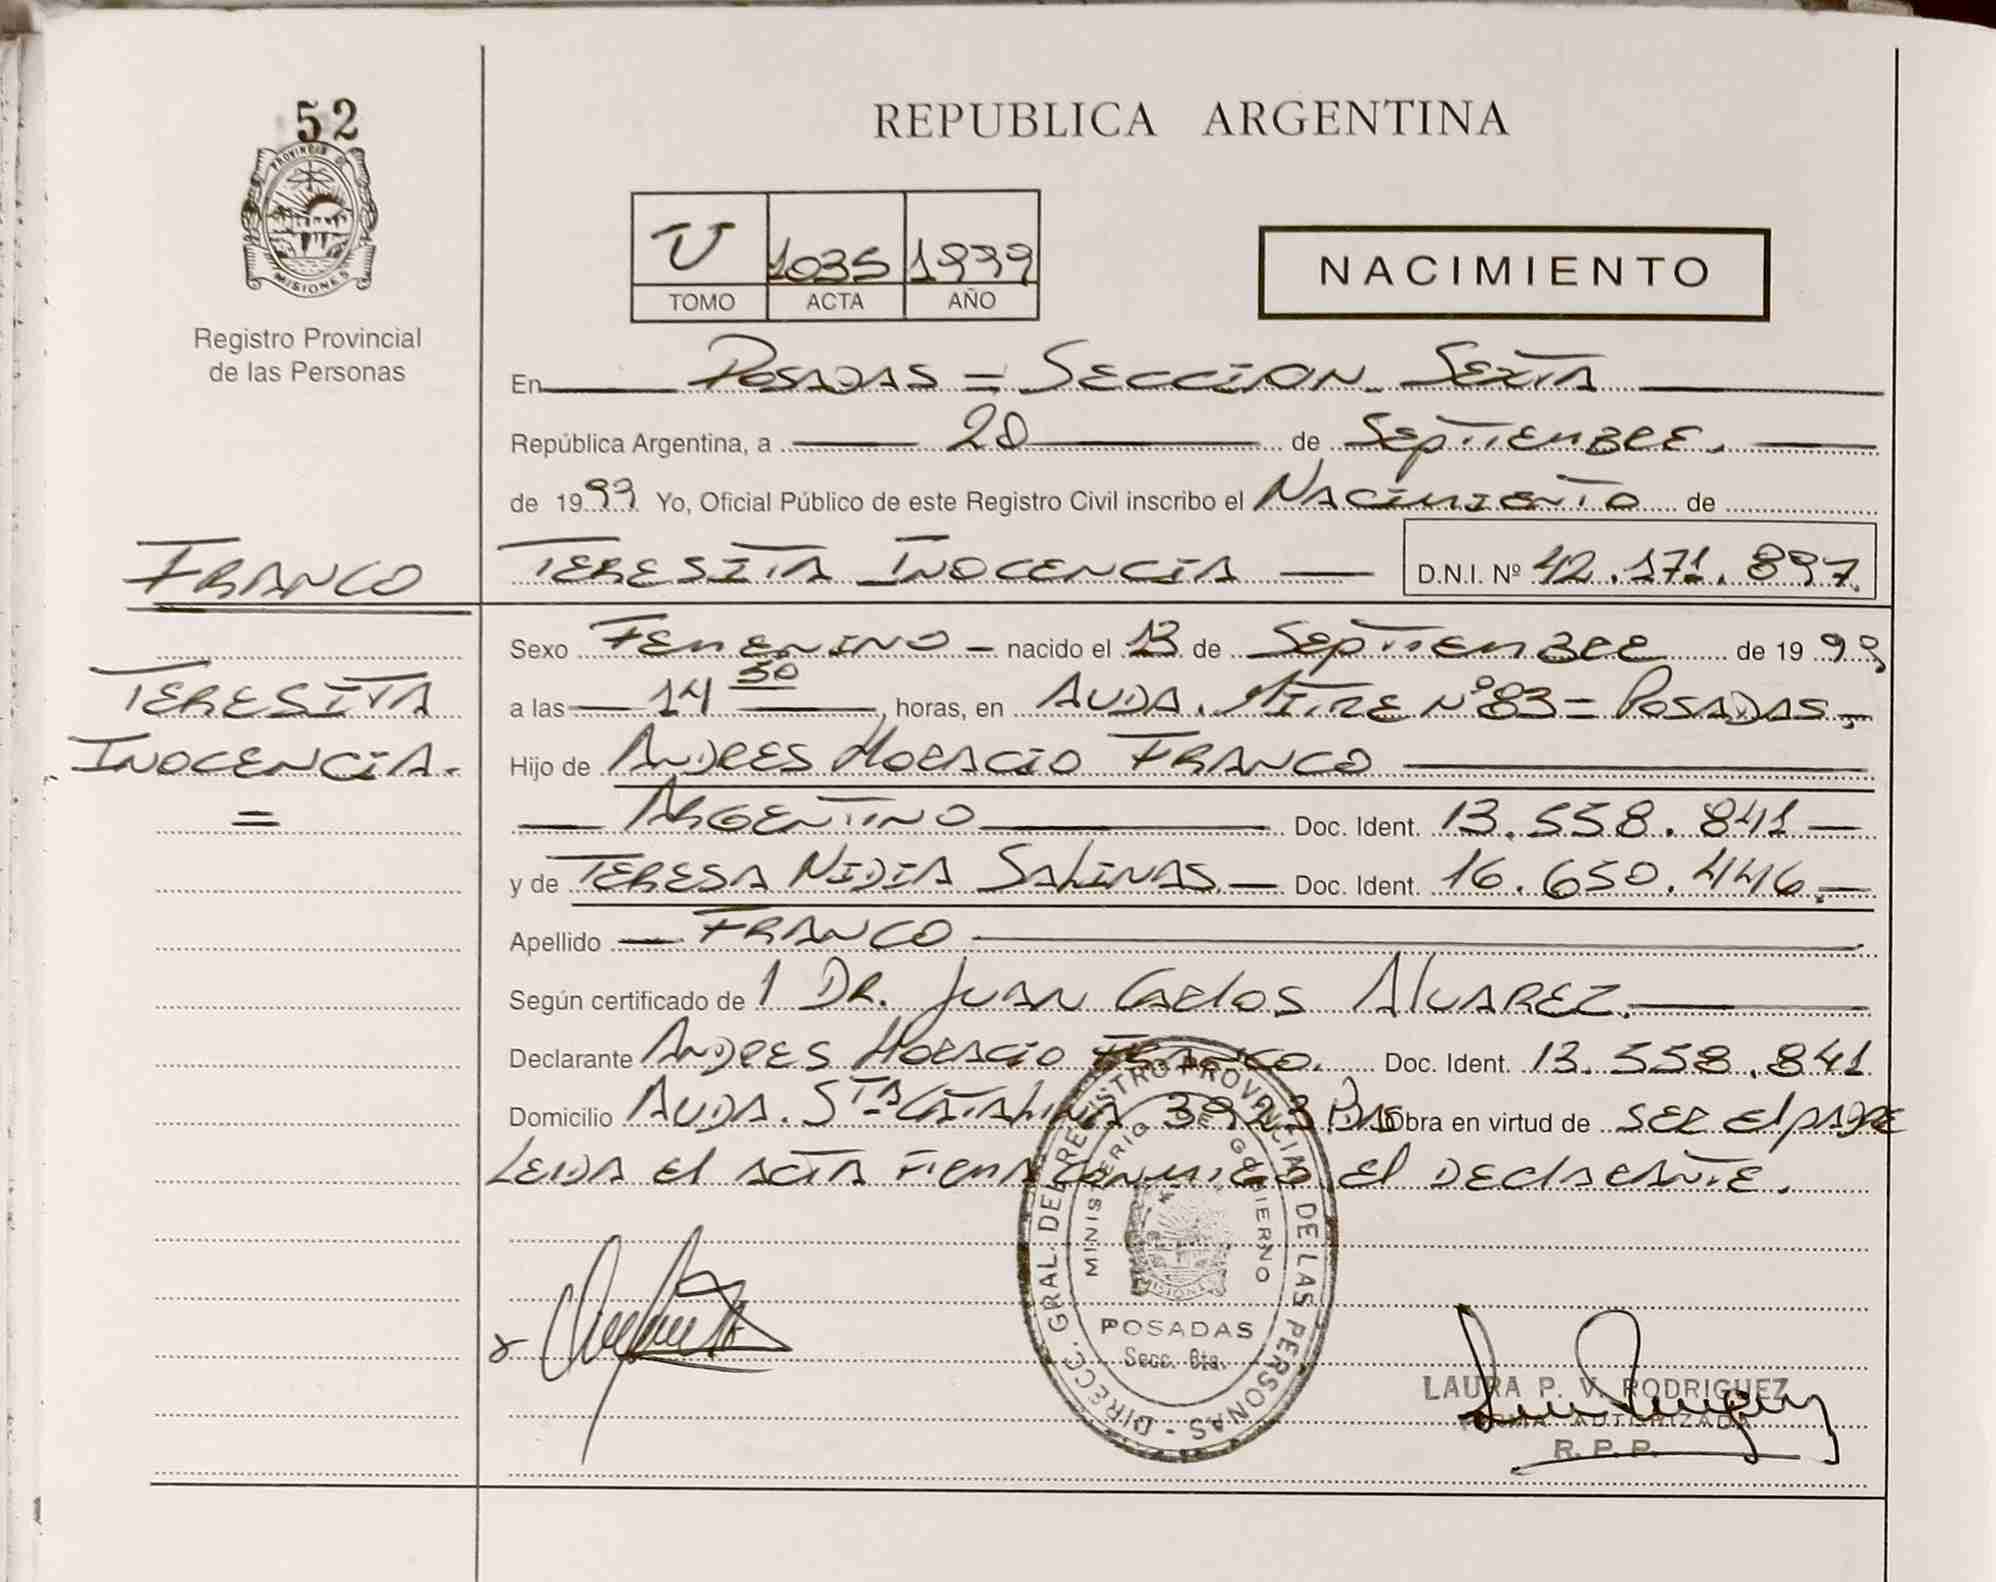 52
PROVINCIA DE
MISIONES
Registro Provincial
de las Personas
REPUBLICA ARGENTINA
U 1035 1999
TOMO ACTA AÑO
NACIMIENTO
En POSADAS = SECCION SEXTA
República Argentina, a 28 de SEPTIEMBRE.
de 1999 Yo, Oficial Público de este Registro Civil inscribo el NACIMIENTO de
FRANCO
TERESITA INOCENCIA D.N.I. Nº 42.171.897.
TERESITA
INOCENCIA.-
=
Sexo FEMENINO - nacido el 13 de SEPTIEMBRE de 1999
a las 14 50, horas, en AVDA. MITRE Nº 83 = POSADAS.-
Hijo de ANDRES HORACIO FRANCO
ARGENTINO Doc. Ident. 13.558.841 -
y de TERESA NIDIA SALINAS - Doc. Ident. 16.650.446.-
Apellido - FRANCO
Según certificado de 1 DR. JUAN CARLOS ALVAREZ.
Declarante ANDRES HORACIO FRANCO. Doc. Ident. 13.558.841
Domicilio AVDA. STA CATALINA 3923 Pdas Obra en virtud de SER El PADRE
LEIDA El ACTA FIRMA CONMIGO El DEClARANTE.
DIRECC. GRAL. DEL REGISTRO PROVINCIAL DE LAS PERSONAS -
MINISTERIO DE GOBIERNO
MISIONES
POSADAS
Secc. 6ta.
LAURA P. V. RODRIGUEZ
FIRMA AUTORIZADA
R. P. P.